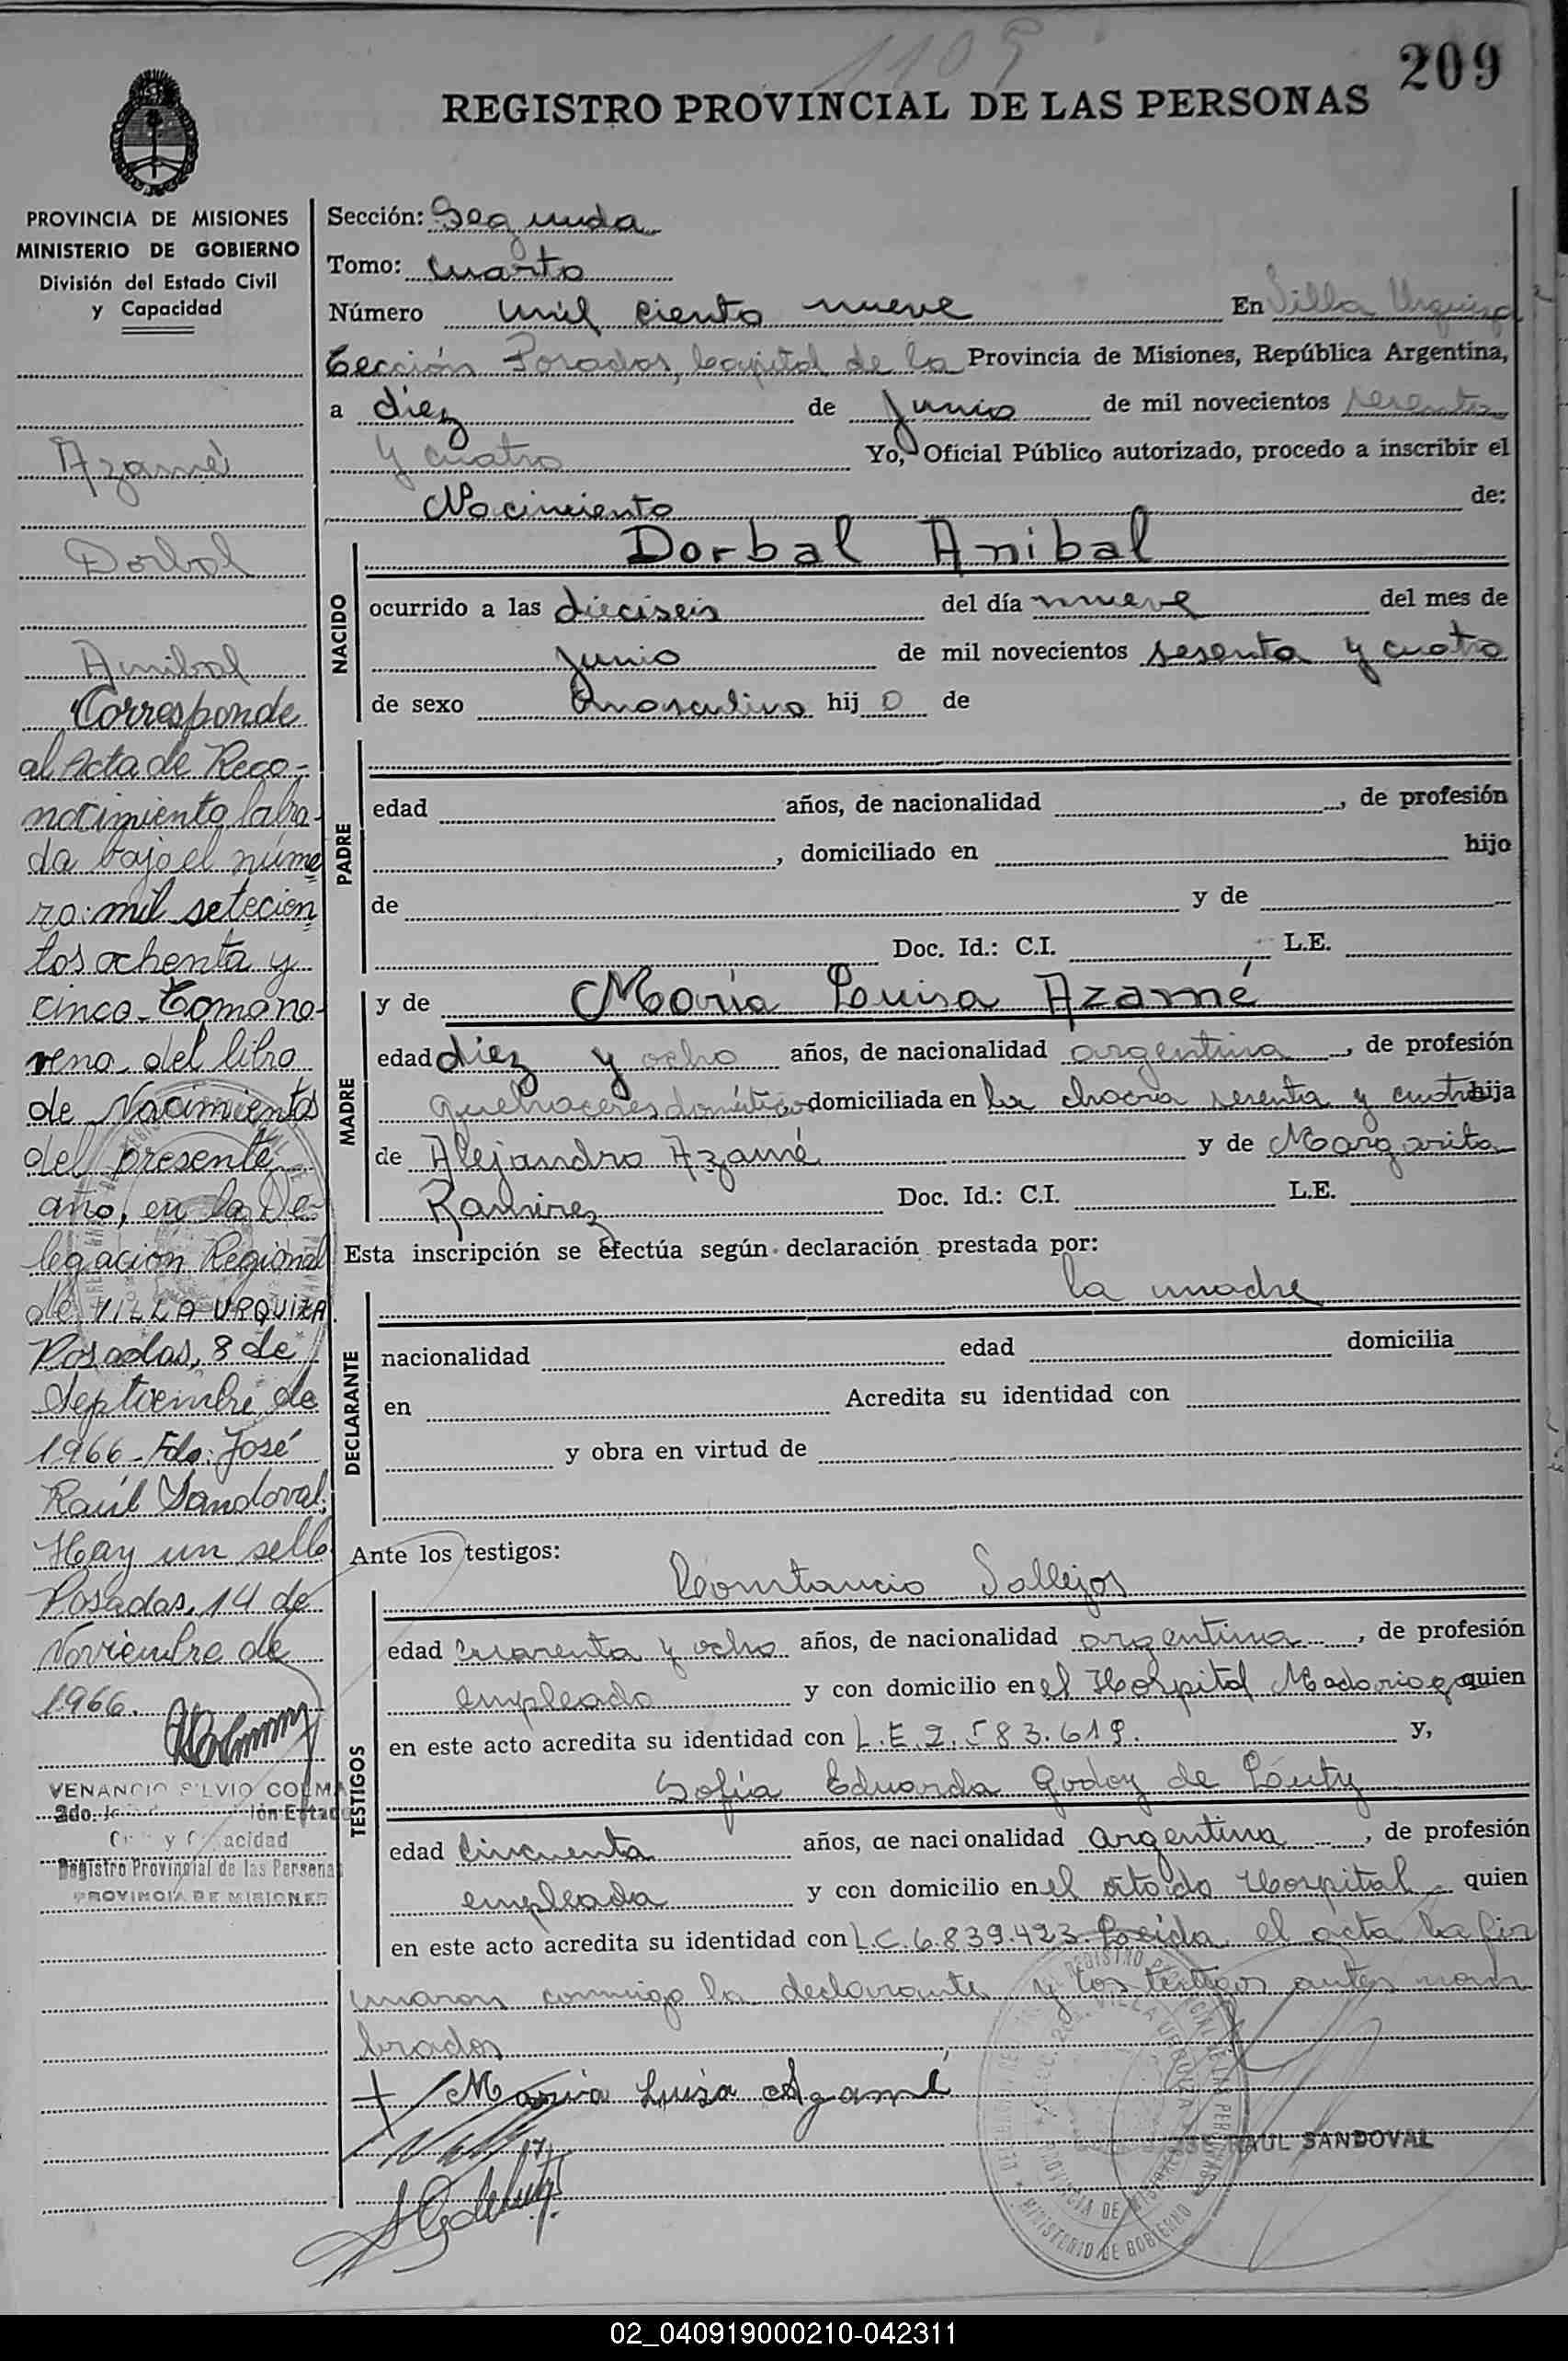 1109
209
REGISTRO PROVINCIAL DE LAS PERSONAS
PROVINCIA DE MISIONES
MINISTERIO DE GOBIERNO
División del Estado Civil
y Capacidad
Azamé
Dorbal
Anibal
Corresponde
al Acta de Reco-
nocimiento labra-
da bajo el núme=
ro: mil setecien=
tos ochenta y
cinco - Tomo no-
veno del libro
de Nacimientos
del presente
año, en la De-
legación Regional
de VILLA URQUIZA
Posadas, 8 de
Septiembre de
1966 - Fdo: José
Raúl Sandoval.
Hay un sello.
Posadas, 14 de
Noviembre de
1966.
VENANCIO SILVIO COLMA
2do. Estado
y acidad
Registro Provincial de las Persona
PROVINCIA DE MISIONES
Sección: Segunda
Tomo: Cuarto
Número mil ciento nueve En Villa Urquiza
Sección Posadas, Capital de la Provincia de Misiones, República Argentina,
a diez de Junio de mil novecientos sesenta
y cuatro Yo, Oficial Público autorizado, procedo a inscribir el
Nacimiento de:
NACIDO
Dorbal Anibal
ocurrido a las dieciseis del día nueve del mes de
junio de mil novecientos sesenta y cuatro
de sexo masculino hijo de
PADRE
edad años, de nacionalidad , de profesión
, domiciliado en hijo
de y de
Doc. Id.: C.I. L.E.
MADRE
y de María Luisa Azamé
edad diez y ocho años, de nacionalidad argentina , de profesión
quehaceres domésticos domiciliada en la chacra sesenta y cuatro hija
de Alejandro Azamé y de Margarita
Ramirez Doc. Id.: C.I. L.E.
Esta inscripción se efectúa según declaración prestada por:
DECLARANTE
la madre
nacionalidad edad domicilia
en Acredita su identidad con
y obra en virtud de
Ante los testigos:
TESTIGOS
Constancio Vallejos
edad cuarenta y ocho años, de nacionalidad argentina , de profesión
empleado y con domicilio en el Hospital Madariaga quien
en este acto acredita su identidad con L.E. 2.583.619. y,
Sofía Eduarda Godoy de
edad Cincuenta años, de nacionalidad argentina , de profesión
empleada y con domicilio en el citado Hospital quien
en este acto acredita su identidad con L.C. 6.839.423. Leída el acta la fir
maron conmigo la declarante y los testigos antes nom
brados
María Luisa Azamé
RAUL SANDOVAL
MINISTERIO DE GOBIERNO
02_040919000210-042311